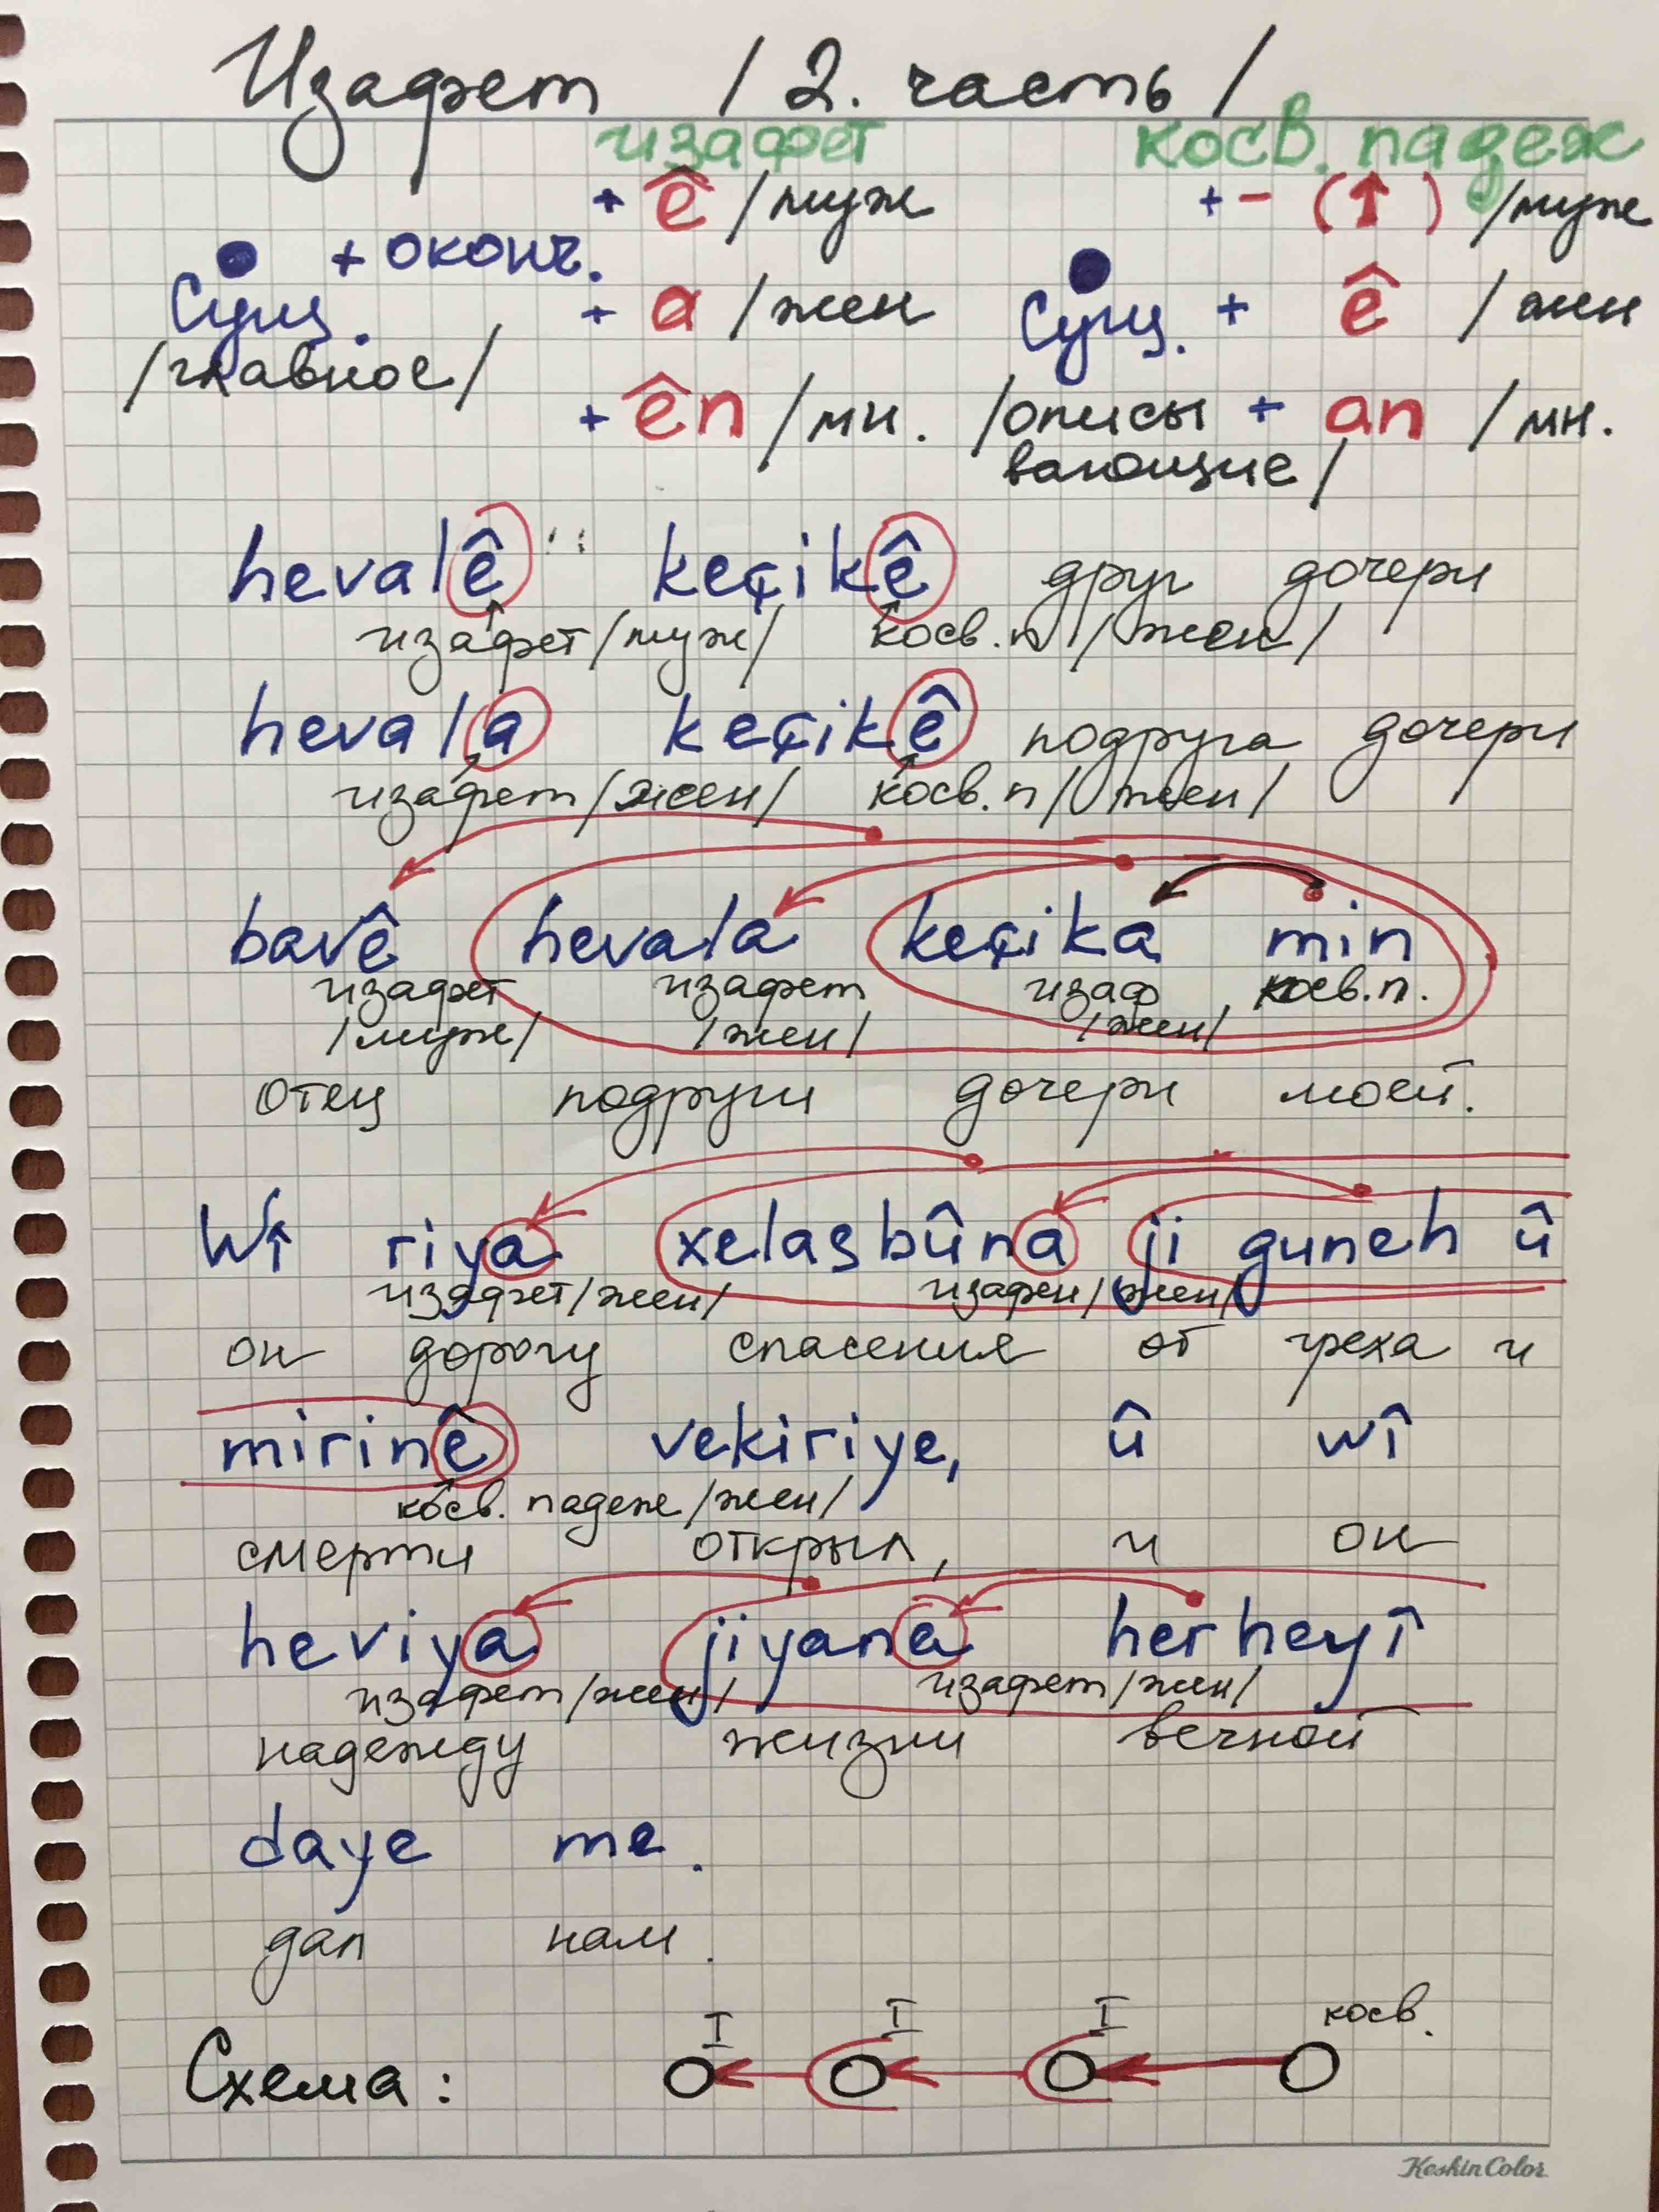 Изафет /2. часть/
изафет косв. падеж
+ ê /муж + - (↑) /муж
• + оконч. •
Сущ. + a /жен Сущ. + ê /жен
/главное/
+ ên /мн. /описы + an /мн.
вающие/
hevalê keçikê друг дочери
изафет/муж/ косв.п/жен/
hevala keçikê подруга дочери
изафет/жен/ косв.п/жен/
bavê hevala keçika min
изафет изафет изаф косв.п.
/муж/ /жен/ /жен/
отец подруги дочери моей.
Wî riya xelasbûna ji guneh û
изафет/жен/ изафет/жен/
он дорогу спасения от греха и
mirinê vekiriye, û wî
косв. падеж/жен/
смерти открыл, и он
heviya jiyana herheyî
изафет/жен/ изафет/жен/
надежду жизни вечной
daye me.
дал нам.
I I I косв.
Схема: O ← O ← O ← O
KeskinColor